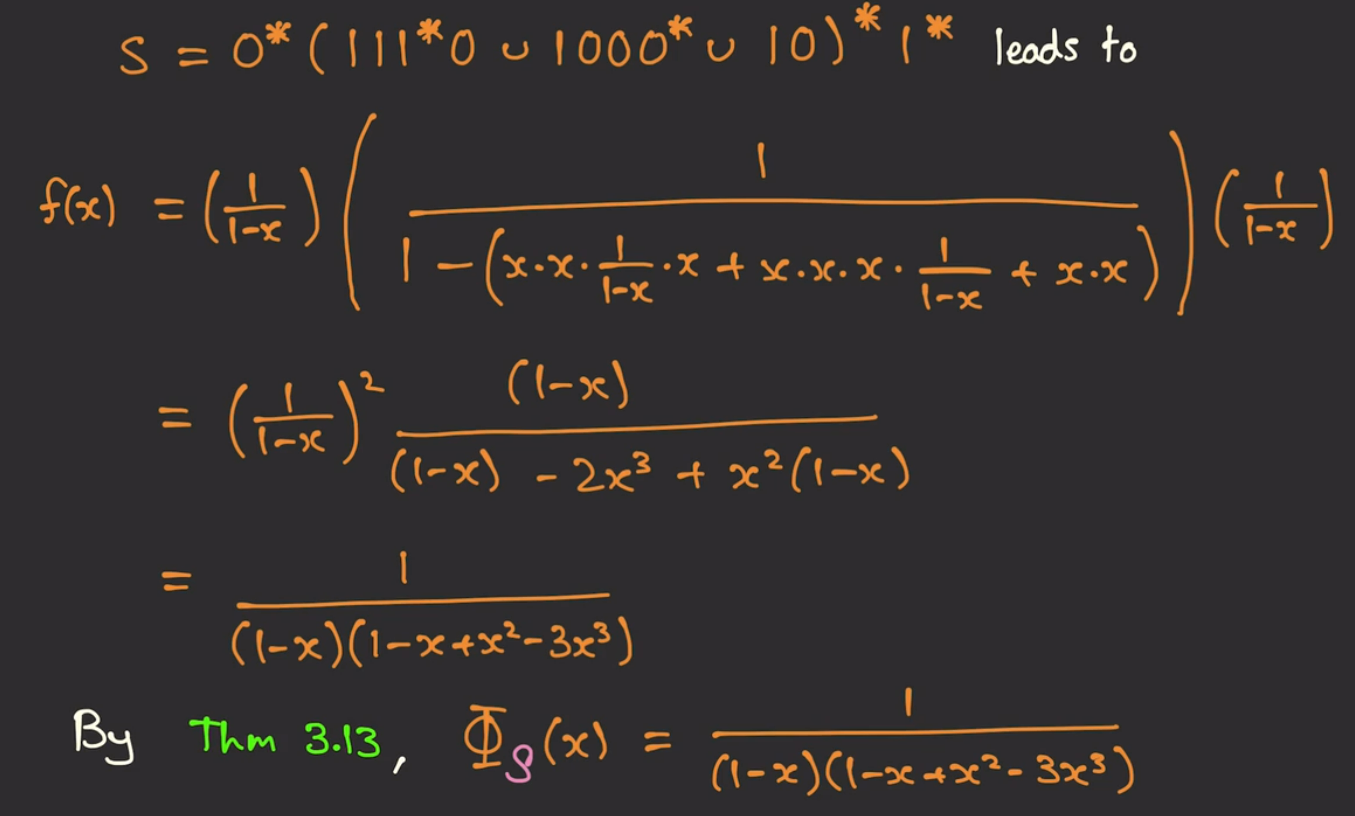 S = 0*(111*0 ∪ 1000* ∪ 10)*1* leads to
f(x) = (1/(1-x)) (1/(1-(x·x·1/(1-x)·x + x·x·x·1/(1-x) + x·x))) (1/(1-x))
= (1/(1-x))² (1-x)/((1-x) - 2x³ + x²(1-x))
= 1/((1-x)(1-x+x²-3x³))
By Thm 3.13, Φ_S(x) = 1/((1-x)(1-x+x²-3x³))